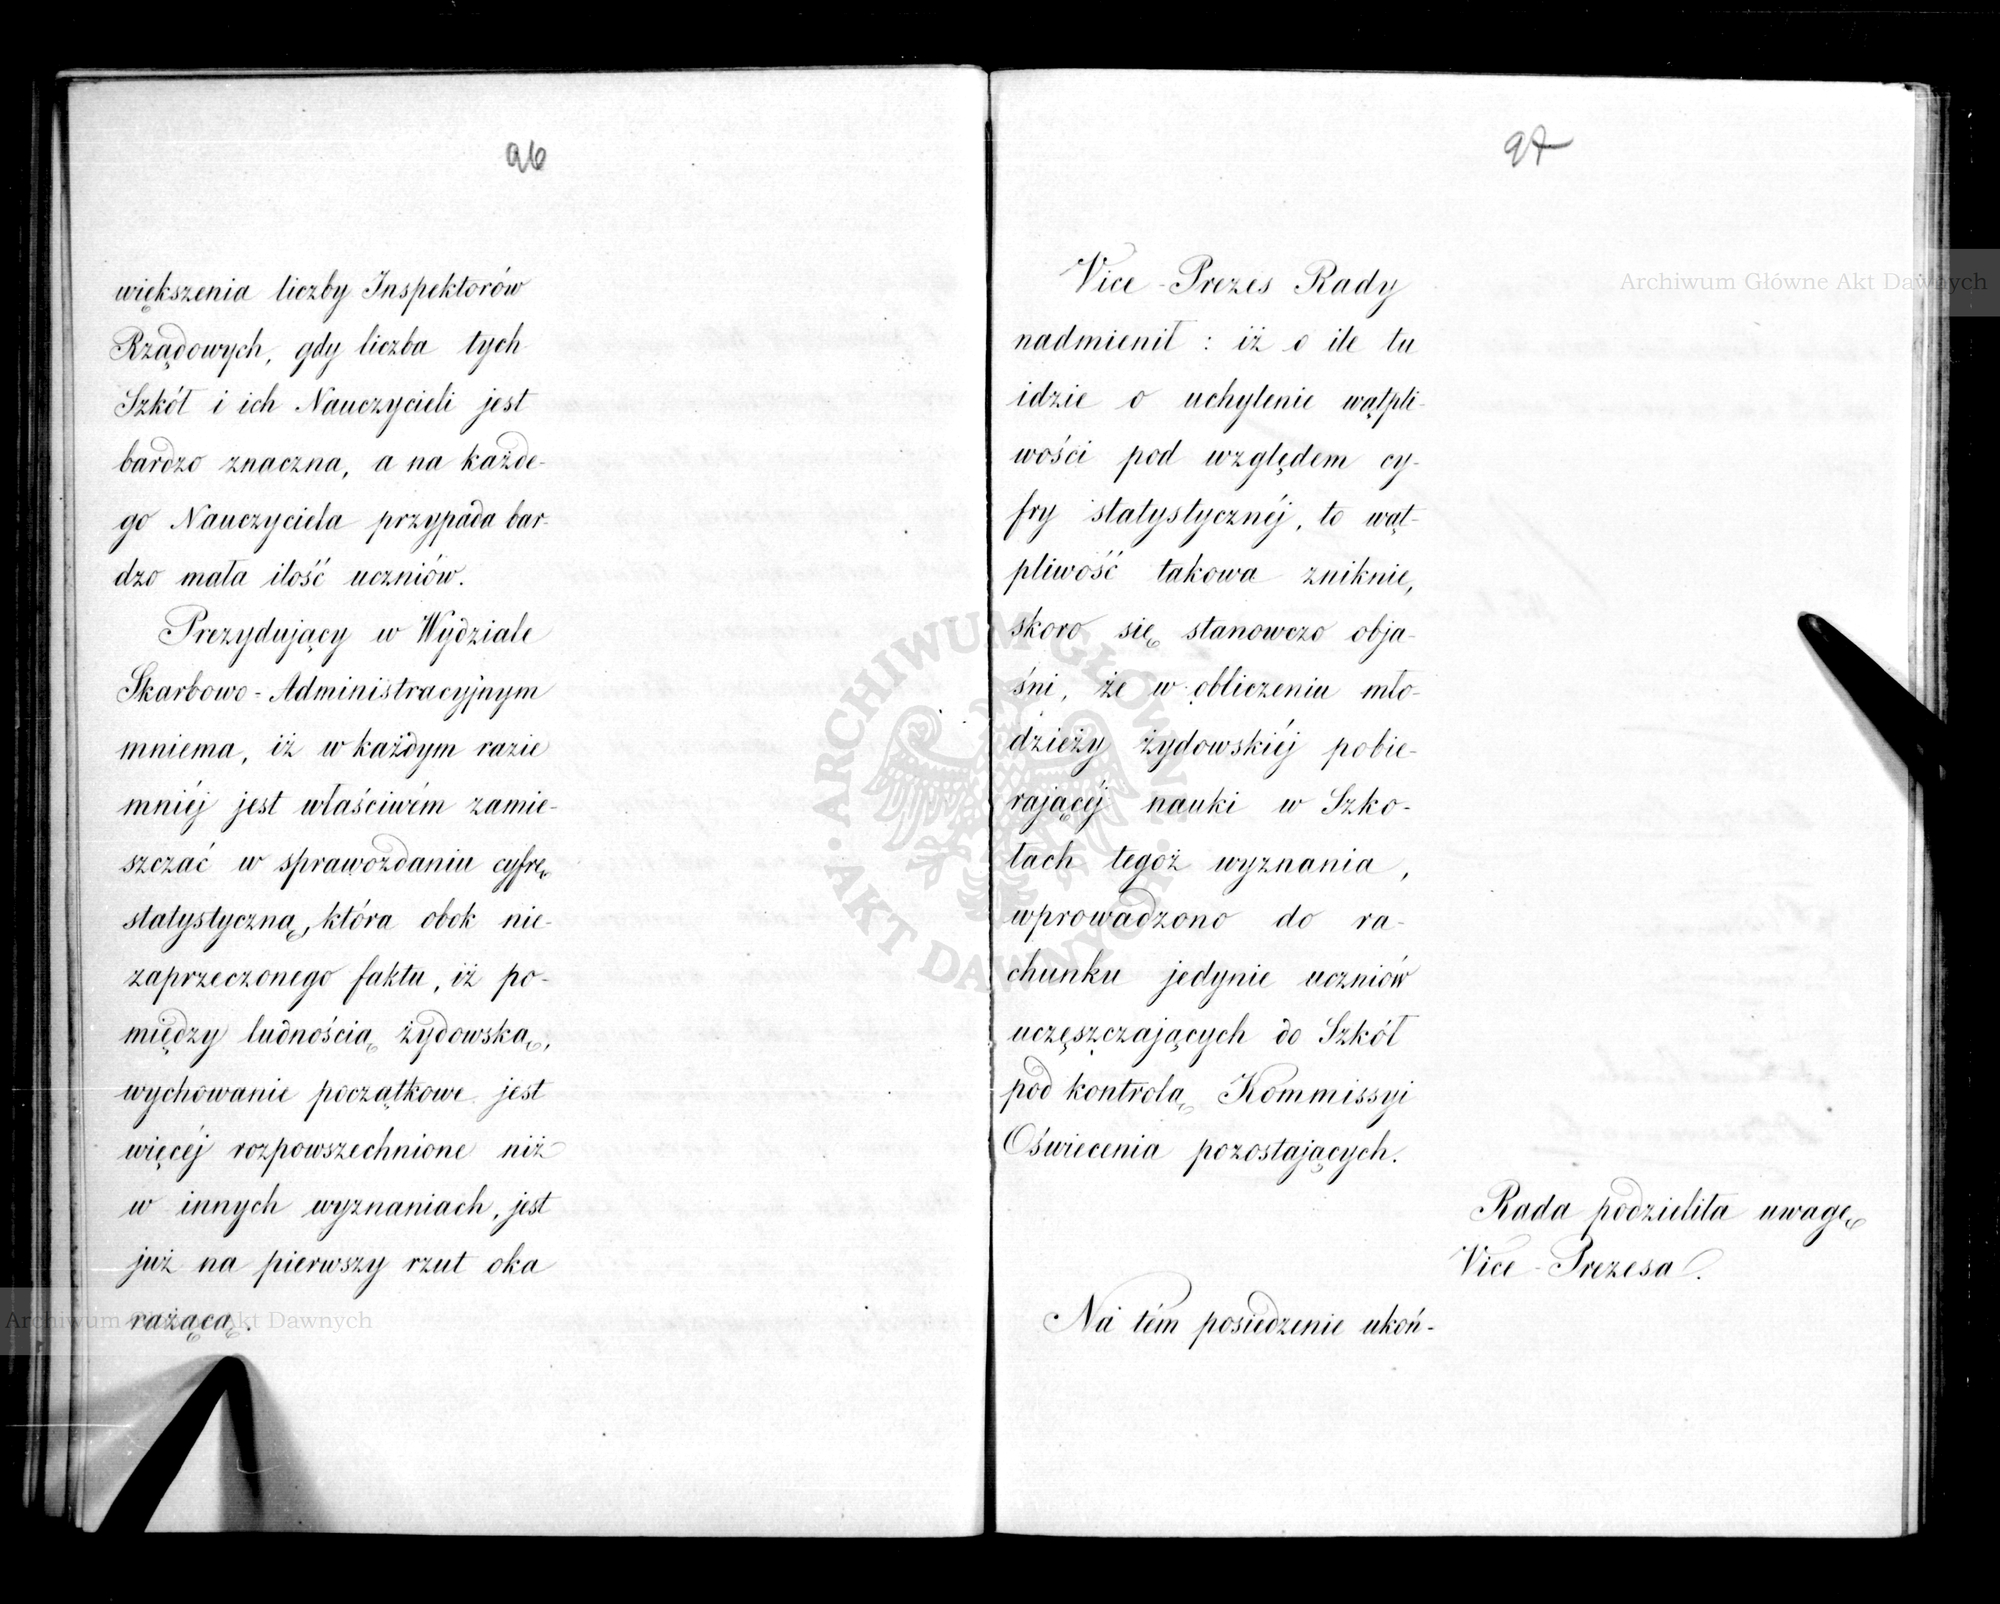 96
większenia liczby Inspektorów
Rządowych, gdy liczba tych
Szkół i ich Nauczycieli jest
bardzo znaczna, a na każde-
go Nauczyciela przypada bar-
dzo mała ilość uczniów.
Prezydujący w Wydziale
Skarbowo-Administracyjnym
mniema, iż w każdym razie
mniéj jest właściwém zamie-
szczać w sprawozdaniu cyfrę
statystyczną, która obok nie-
zaprzeczonego faktu, iż po-
między ludnością żydowską,
wychowanie początkowe jest
więcéj rozpowszechnione niż
w innych wyznaniach, jest
już na pierwszy rzut oka
rażącą.
97
Vice-Prezes Rady
nadmienił: iż o ile tu
idzie o uchylenie wątpli-
wości pod względem cy-
fry statystycznéj, to wąt-
pliwość takowa zniknie,
skoro się stanowczo obja-
śni, że w obliczeniu mło-
dzieży żydowskiéj pobie-
rającéj nauki w Szko-
łach tegoż wyznania,
wprowadzono do ra-
chunku jedynie uczniów
uczęszczających do Szkół
pod kontrolą Kommissyi
Oświecenia pozostających.
Rada podzieliła uwagę
Vice-Prezesa.
Na tém posiedzenie ukoń-
Archiwum Główne Akt Dawnych
Archiwum Główne Akt Dawnych
ARCHIWUM GŁÓWNE
AKT DAWNYCH